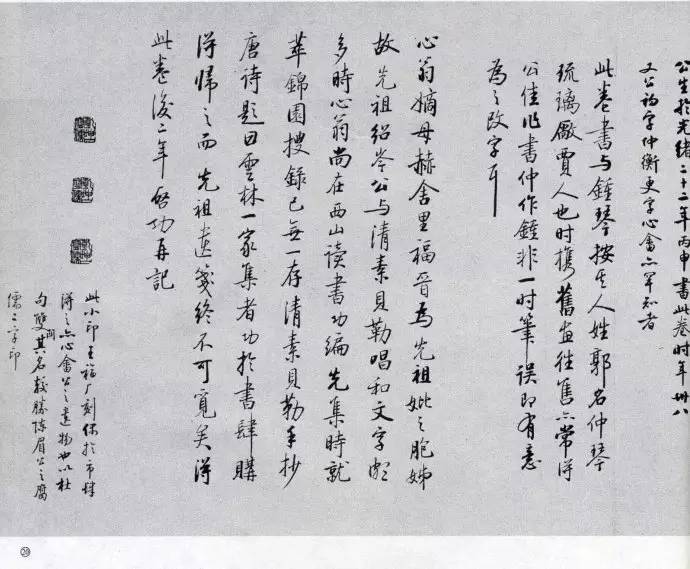 公生於光緒二十二年丙申書此卷时年卅八
又公初字仲衡更字心畬亦罕知者
此卷書与鍾琴按其人姓郭名仲琴
琉璃廠賈人也时携舊畫往售亦常得
公佳作書仲作鍾非一时筆误即有意
為之改字耳
心翁嫡母赫舍里福晋為先祖妣之胞姊
故先祖绍岑公与清素貝勒唱和文字頗
多時心翁尚在西山读書功编先集時就
萃錦園搜録已無一存清素貝勒手抄
唐诗题曰雲林一家集者功於書肆購
得歸之而先祖遗笺终不可覓矣得
此卷後二年啓功再記
此小印王福厂刻保於市肆
得之亦心畬公之遺物也以杜
句雙關其名较勝陈眉公之腐
儒二字印
⑳